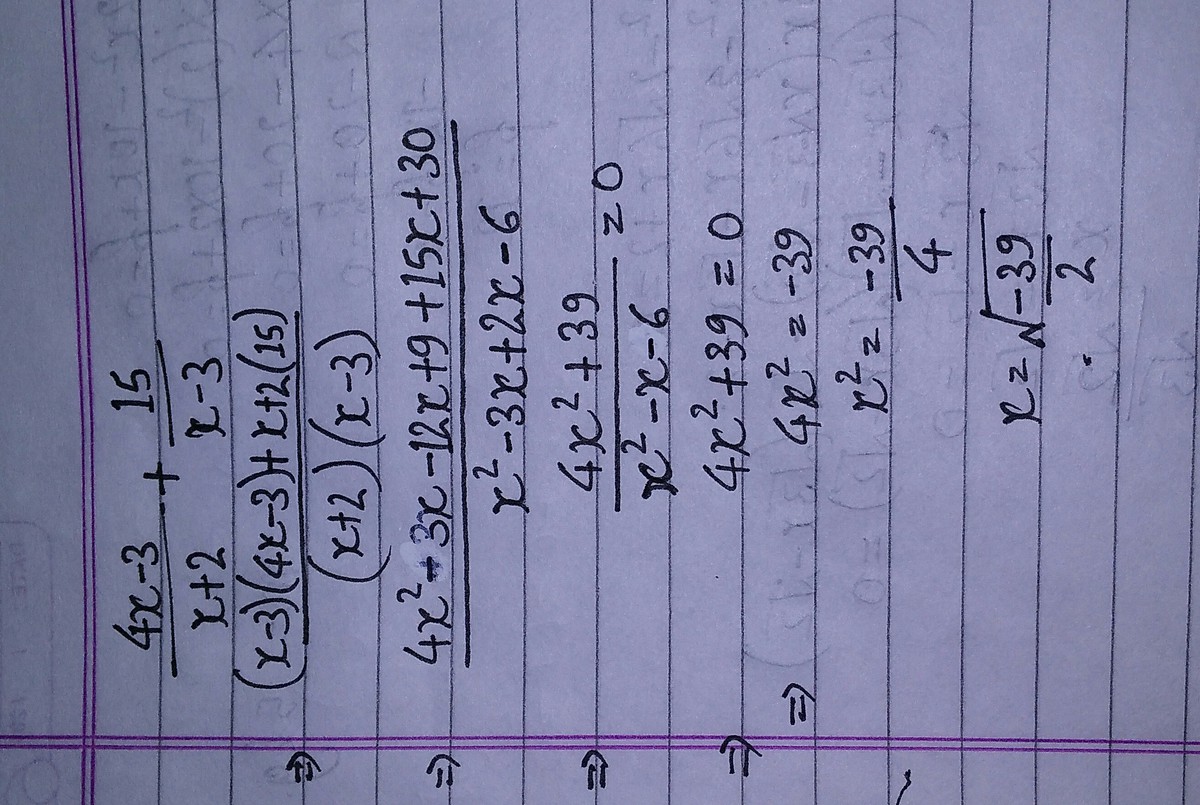 4x-3 + 15
x+2 x-3
⇒ (x-3)(4x-3)+x+2(15)
(x+2)(x-3)
⇒ 4x²-3x-12x+9+15x+30
x²-3x+2x-6
⇒ 4x²+39 = 0
x²-x-6
⇒ 4x²+39 = 0
⇒ 4x² = -39
x² = -39
4
x = √-39
2